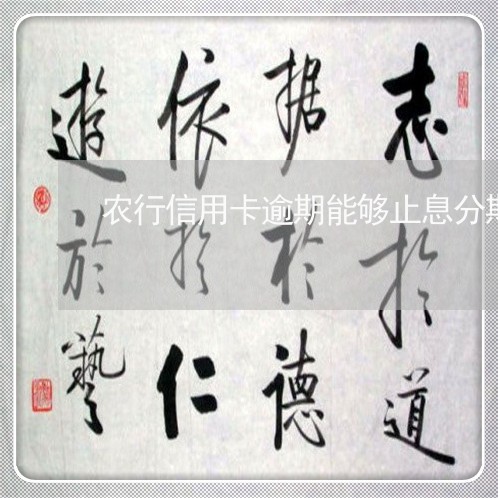 志於道
据於德
依於仁
遊於藝
农行信用卡逾期能够止息分